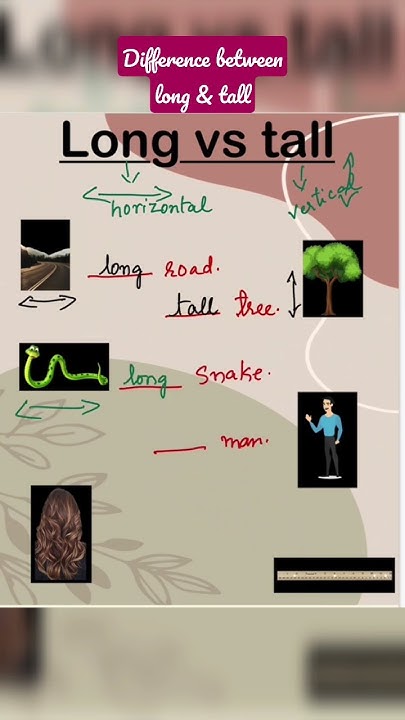 Difference between
long & tall
Long vs tall
horizontal
vertical
long road.
tall tree.
long snake.
___ man.